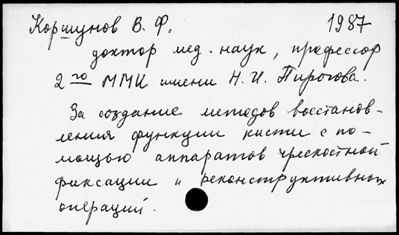 Коршунов В. Ф. 1987
доктор мед. наук, профессор
2го ММИ имени Н. И. Пирогова.
За создание методов восстанов-
ления функции кисти с по-
мощью аппаратов чрескостной
фиксации и реконструктивных
операций.